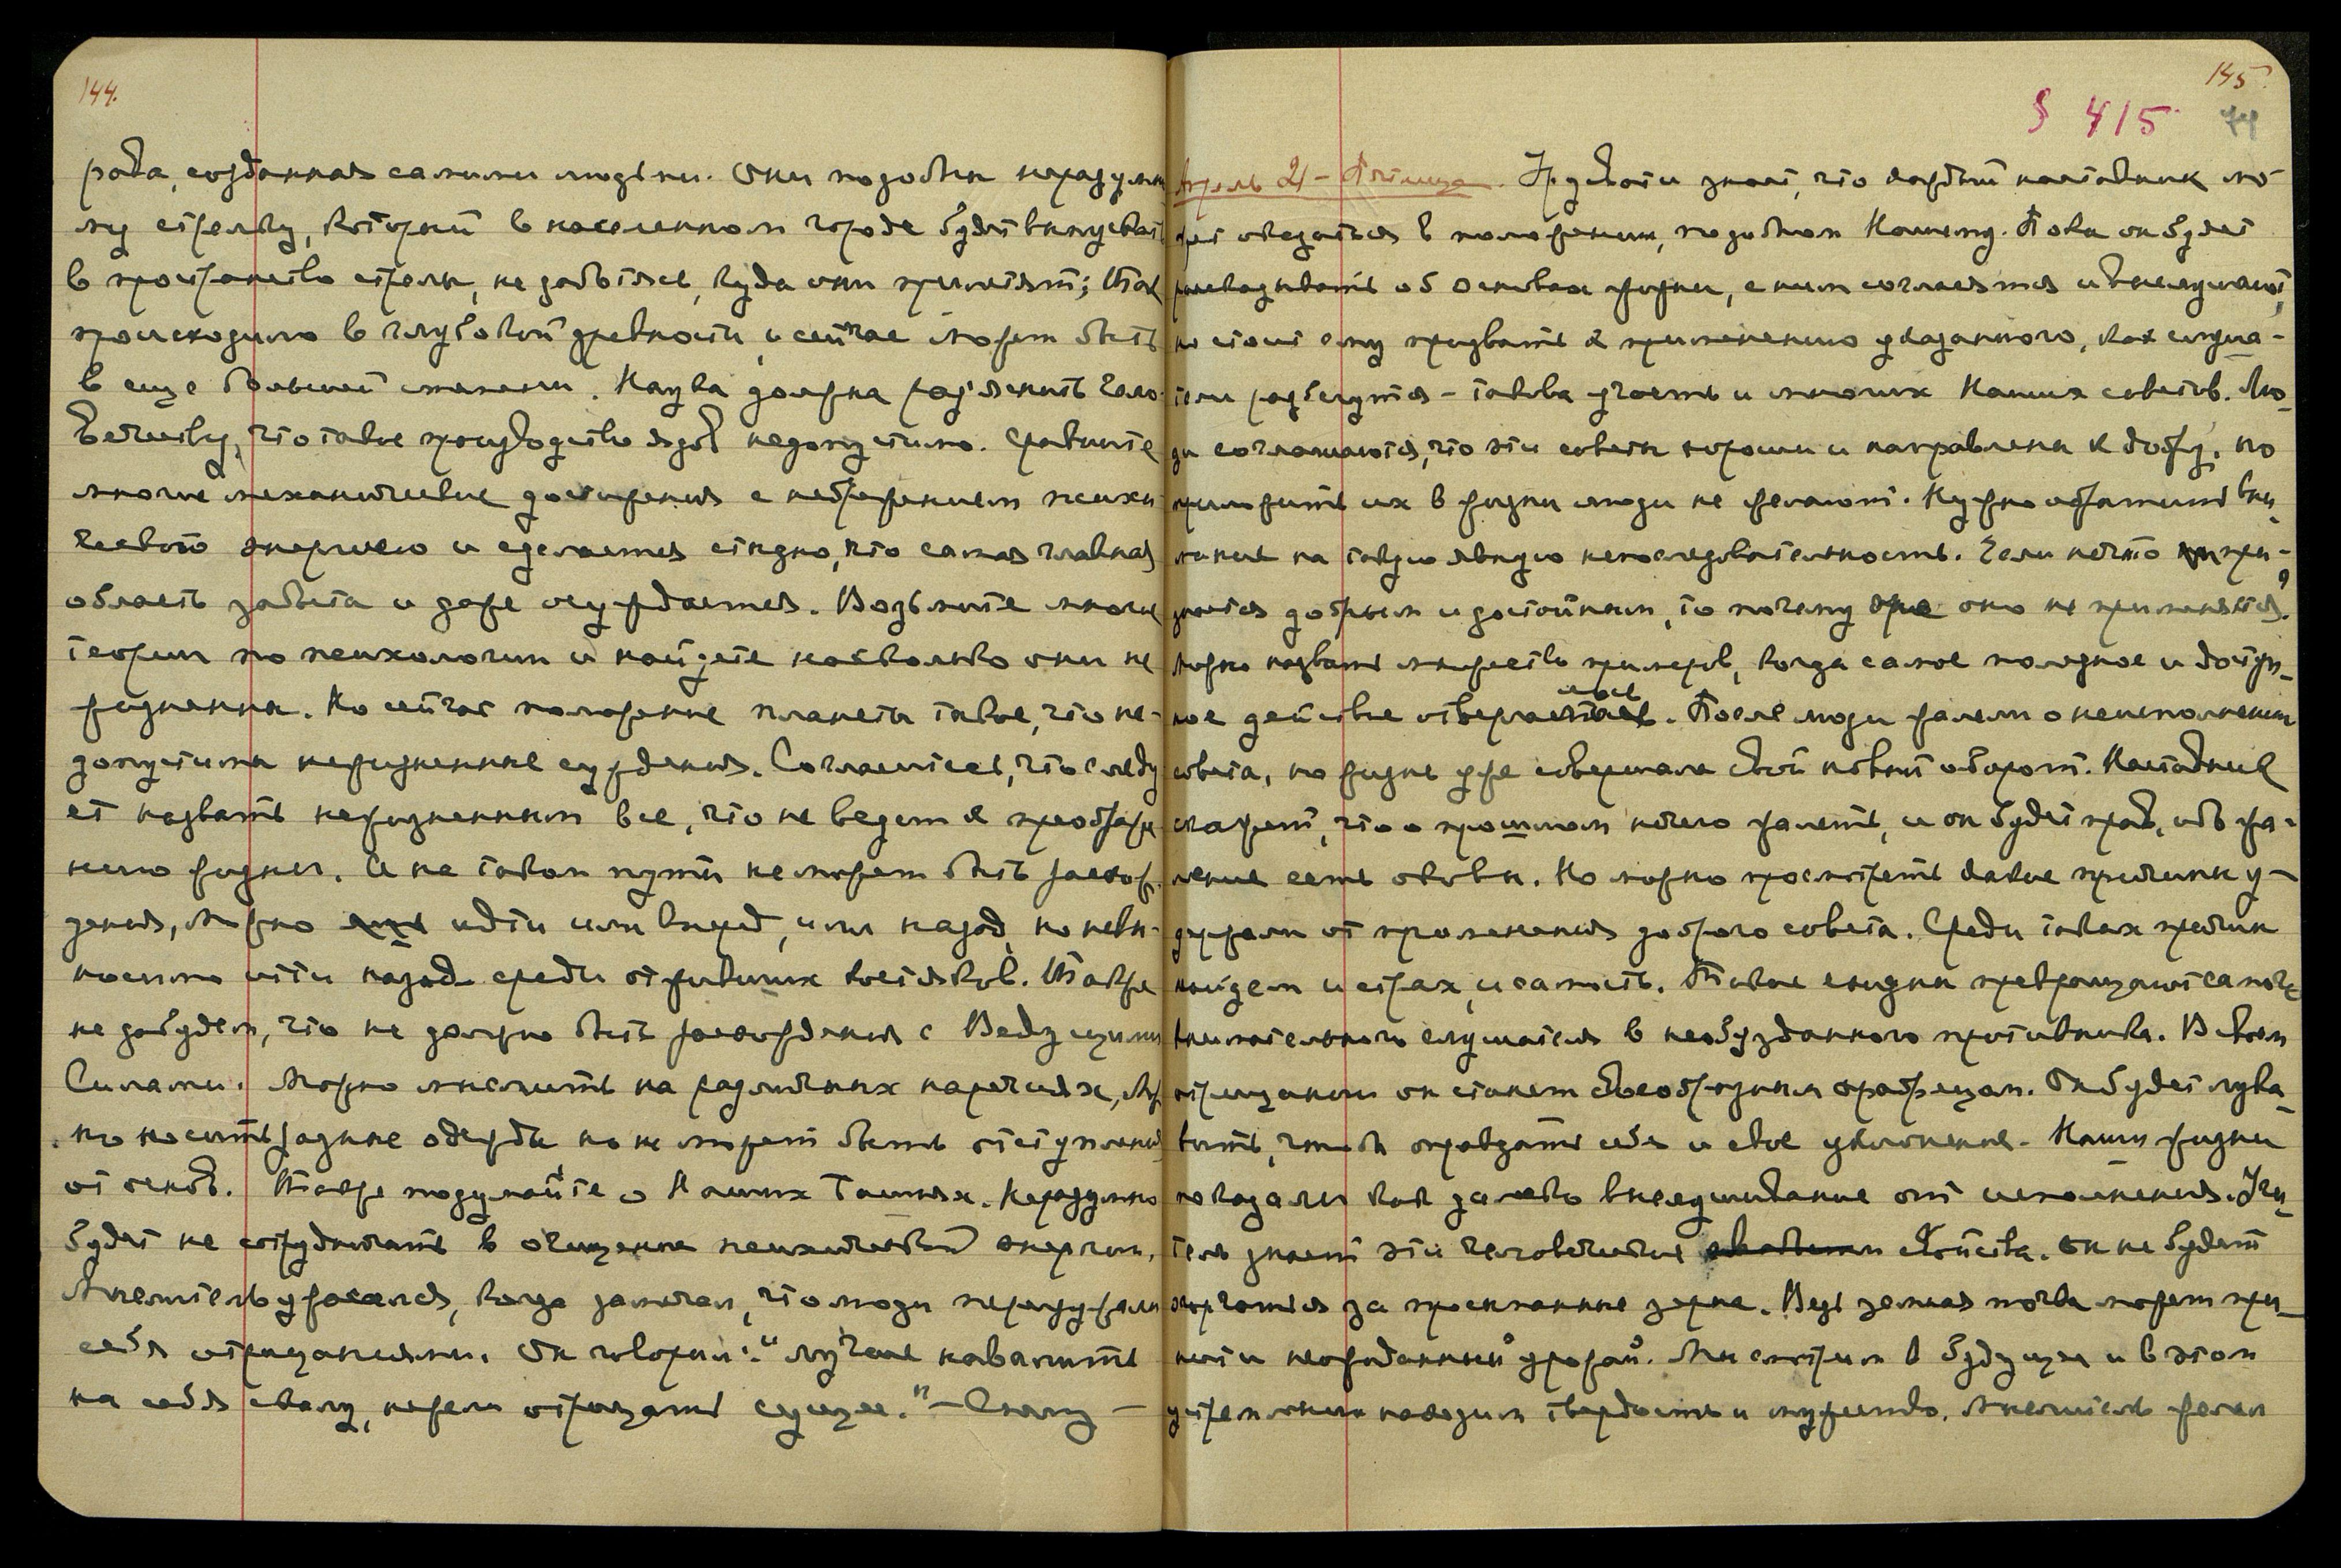 144.
рова, созданная самими людьми. Они подобны неразумно
му стрелку, который в населенном городе будет выпускать
в пространство стрелы, не заботясь, куда они прилетят; Так
происходило в глубокой древности, и сейчас может быть
в еще большей степени. Наука должна раз'яснить чело
вечеству, что такое производство ядов недопустимо. Сравните
многие механические достижения с небрежением психи
ческою энергиею и сделается стыдно, что самая главная
область забыта и даже осуждается. Возьмите многие
теории по психологии и найдете насколько они не
жизненны. Но сейчас положение планеты такое, что не-
допустимы нежизненные суждения. Согласитесь, что следу
ет назвать нежизненным все, что не ведет к преображе
нию жизни. И на таком пути не может быть расхож
дения, можно идти или вперед, или назад, но невы-
носимо идти назад среди отживших костяков. Также
не забудем, что не должно быть расхождения с Ведущими
Силами. Можно мыслить на различных наречиях, мож
но носить разные одежды но не может быть отступления
от основ. Также подумайте о Наших Тайнах. Неразумно
будет не сотрудничать в очищении психической энергии.
Мыслитель ужасался, когда замечал, что люди перегружали
себя отрицаниями. Он говорил: "лучше навалите
на себя скалу, нежели отрицать сущее." – Снялу –
145
§ 415 74
Апрель 21 – Пятница. Урусвати знает, что каждый наставник мо-
жет оказаться в положении, подобном Нашему. Пока он будет
рассказывать об основах жизни, с ним согласятся и выслушают,
но стоит ему призвать к применению указанного, как слуша-
тели разбегутся – такова участь и многих Наших советов. Лю-
ди соглашаются, что эти советы хороши и направлены к добру, но
приложить их в жизни люди не желают. Нужно обратить вни
мание на такую явную непоследовательность. Если нечто при-
знается добрым и достойным, то почему оно не применяется?
Можно назвать множество примеров, когда самое полезное и доступ-
ное действие отвергалось. После люди жалели о неисполнении
совета, но жизнь уже совершала свой новый оборот. Наставник
скажет, что о прошлом нечего жалеть, и он будет прав, ибо жа-
ление есть оковы. Но можно просмотреть какие причины у-
держали от применения доброго совета. Среди таких причин
найдем и страх, и самость. Такие ехидны превращают самого
внимательного слушателя в необузданного противника. В своем
отрицании он станет своеобразным образцом. Он будет лука-
вить, чтобы оправдать себя и свое уклонение. Наши жизни
показали как далеко выслушивание от исполнения. Учи-
тель знает эти человеческие свойства. он не будет
огорчаться за просыпанные зерна. Ведь земная почва может при-
нести неожиданный урожай. Мы смотрим в будущее и в этом
устремлении находим твердость и мужество. Мыслитель желал